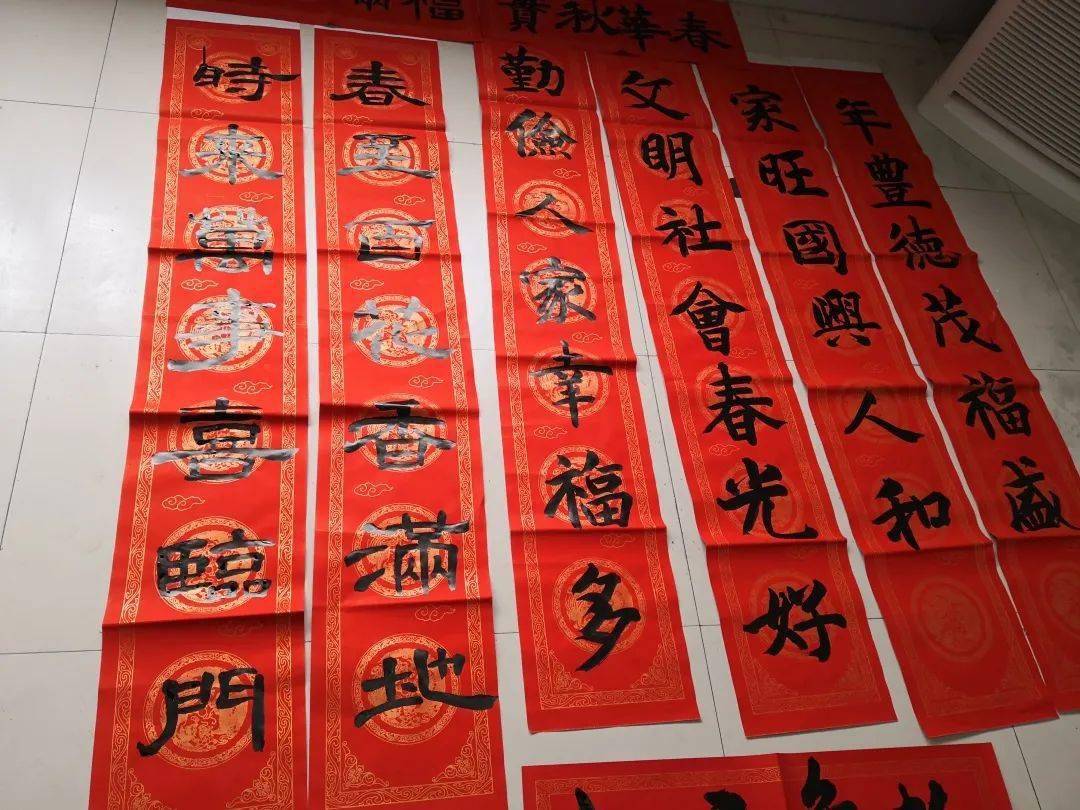 春華秋實
福
年豐德茂福盛
家旺國興人和
文明社會春光好
勤儉人家幸福多
春至百花香滿地
時來萬事喜臨門